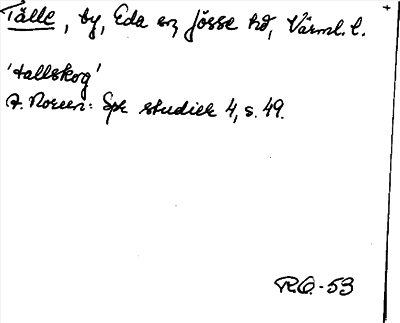 Tälle, by, Eda sn, Jösse hd, Värml. l.
'tallskog'
A. Noreen: Spr. studier 4, s. 49.
R.O.-53